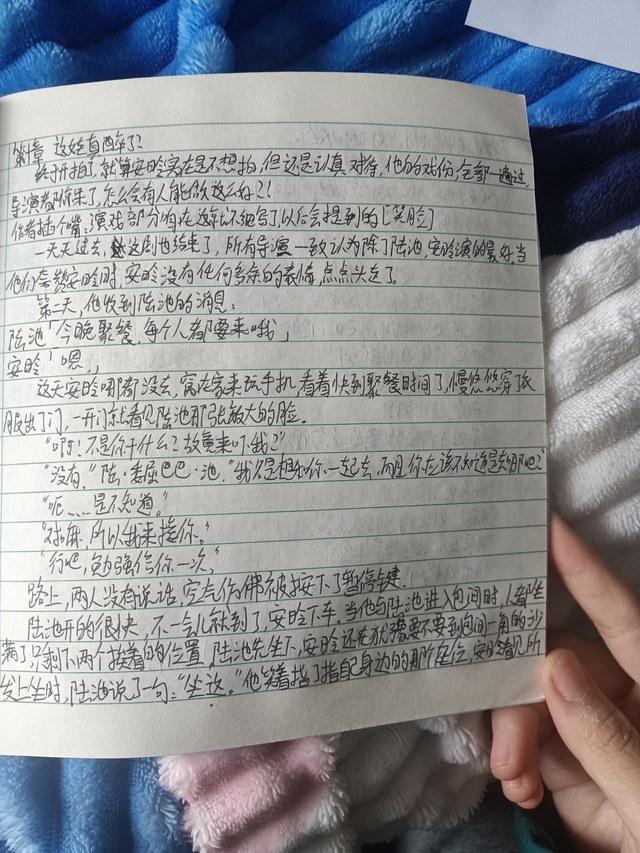 第1章 这始真醉了?
终于开拍了,就算安晗实在是不想拍,但还是认真对待,他的戏份全部一遍过,
导演都惊呆了,怎么会有人能做这么好?!
作者插个嘴:演戏部分省在这就不细写了,以后会提到的[笑脸]
一天天过去,这剧也结束了,所有导演一致认为除了陆池,安晗演的最好,当
他们夸赞安晗时,安晗没有任何多余的表情,点点头走了。
第二天,他收到陆池的消息:
陆池「今晚聚餐,每个人都要来哦」
安晗「嗯」
这天安晗哪都没去,窝在家来玩手机,看着快到聚餐时间了,慢悠悠穿了衣
服出了门,一开门就看见陆池那张放大的脸。
“啊!不是你干什么?故意来吓我?”
“没有。”陆·委屈巴巴·池。“我只是想和你一起去,而且你应该不知道是去哪吧?”
“呃……是不知道。”
“对嘛,所以我来接你。”
“行吧,勉强信你一次。”
路上,两人没有说话,空气仿佛被按下了暂停键。
陆池开的很快,不一会儿就到了,安晗下车。当他和陆池进入包间时,人都坐
满了,只剩下两个挨着的位置,陆池先坐下,安晗还在犹豫要不要到包间一角的沙
发上坐时,陆池说了一句:“坐这。”他笑着指了指自己身边的那个座位,安晗看见所